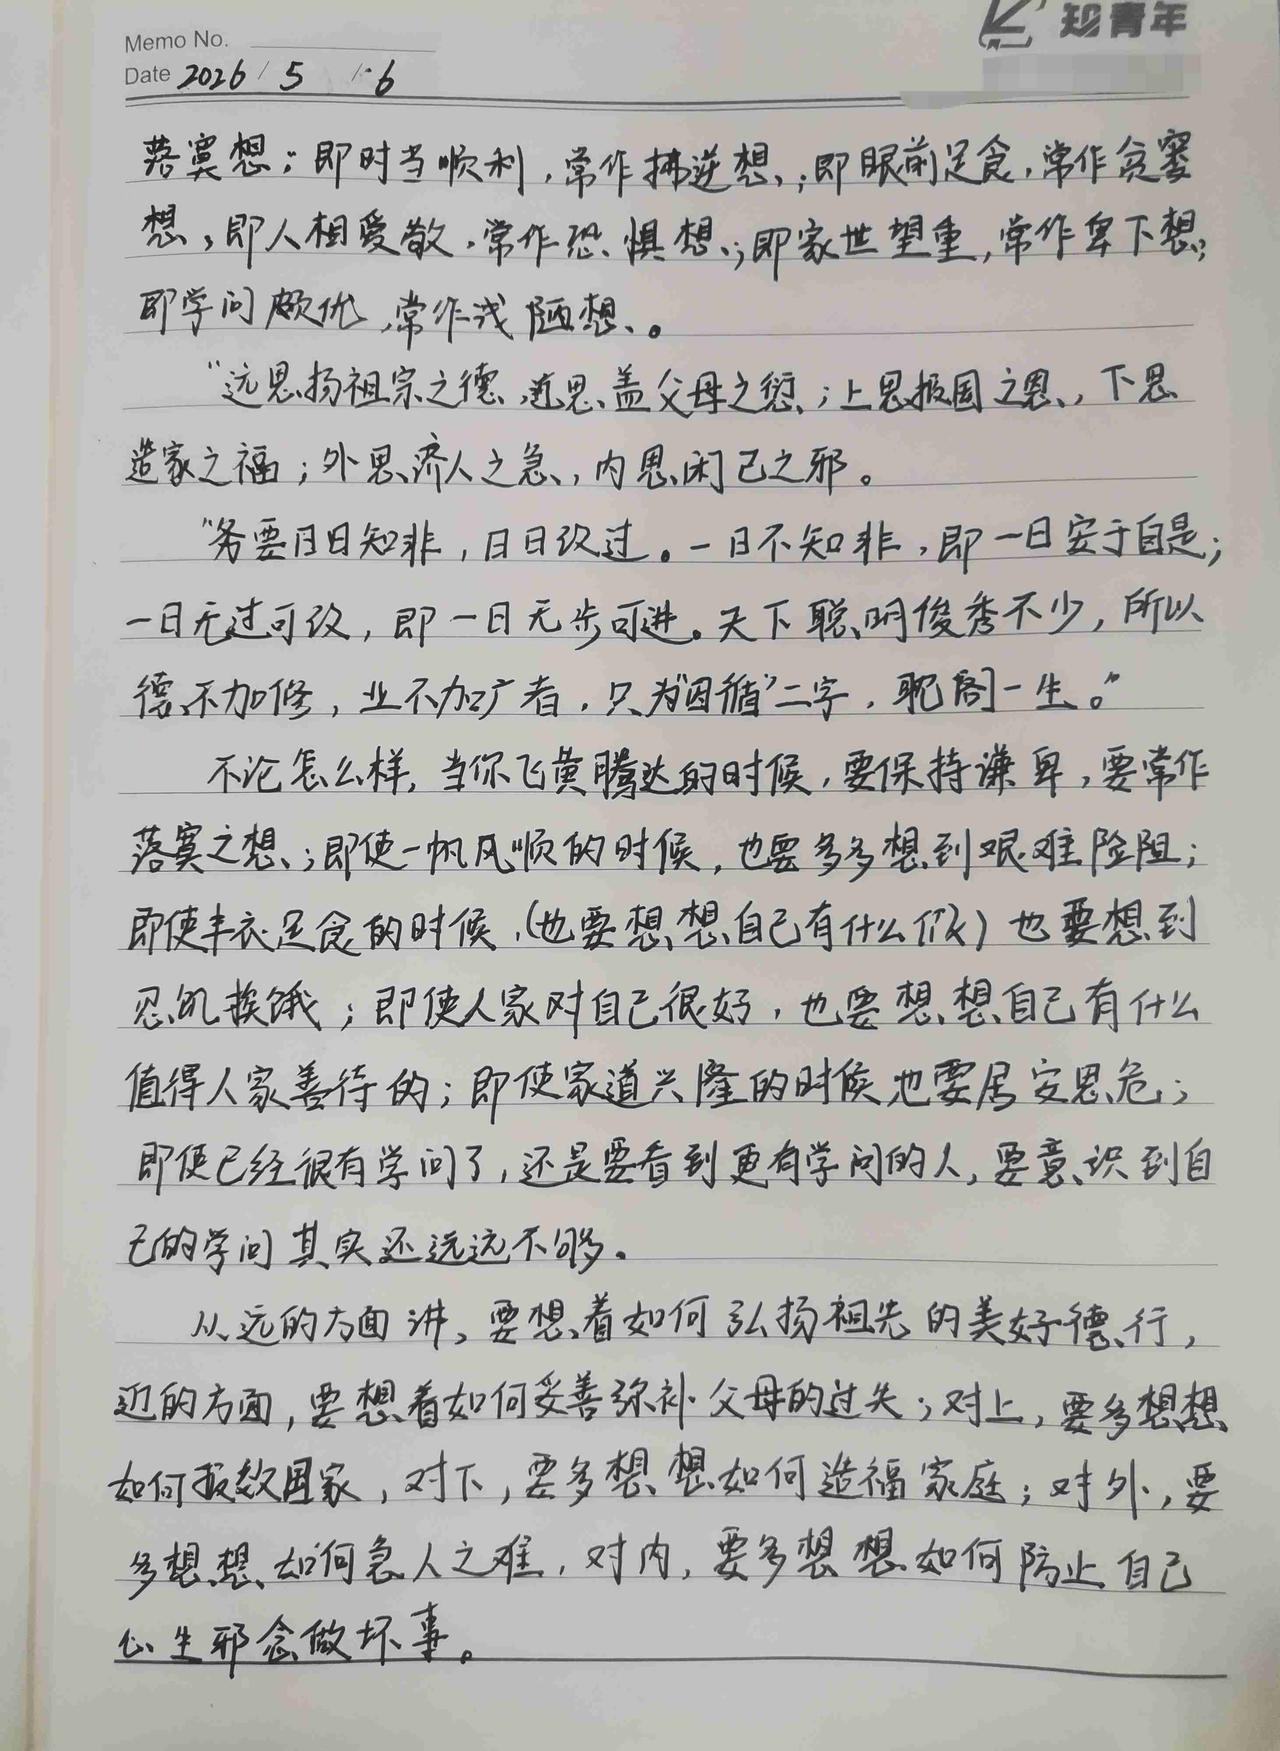 知青年
Memo No.
Date 2026/5/6
落寞想；即时当顺利，常作拂逆想；即眼前足食，常作贫窭
想，即人相爱敬，常作恐惧想；即家世望重，常作卑下想；
即学问颇优，常作浅陋想。
“远思扬祖宗之德，近思盖父母之愆；上思报国之恩，下思
造家之福；外思济人之急，内思闲己之邪。
“务要日日知非，日日改过。一日不知非，即一日安于自是；
一日无过可改，即一日无步可进。天下聪明俊秀不少，所以
德不加修，业不加广者，只为“因循”二字，耽阁一生。”
不论怎么样，当你飞黄腾达的时候，要保持谦卑，要常作
落寞之想；即使一帆风顺的时候，也要多多想到艰难险阻；
即使丰衣足食的时候，（也要想想自己有什么）也要想到
忍饥挨饿；即使人家对自己很好，也要想想自己有什么
值得人家善待的；即使家道兴隆的时候也要居安思危；
即使已经很有学问了，还是要看到更有学问的人，要意识到自
己的学问其实还远远不够。
从远的方面讲，要想着如何弘扬祖先的美好德行，
近的方面，要想着如何妥善弥补父母的过失；对上，要多想想
如何报效国家，对下，要多想想如何造福家庭；对外，要
多想想如何急人之难，对内，要多想想如何防止自己
心生邪念做坏事。